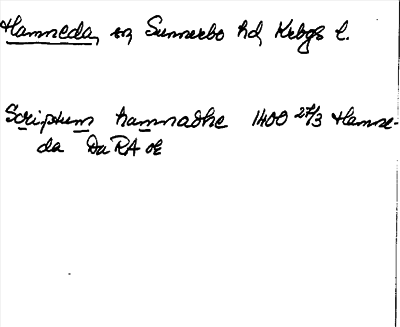 Hamneda, sn, Sunnerbo hd, Krbgs l.
Scriptum hamnadhe 1400 27/3 Hamne-
da Du RA or